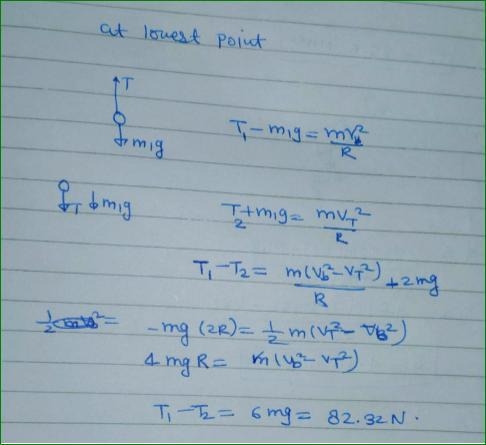 at lowest point
T
m₁g
T₁ - m₁g = mv_b²/R
T m₁g
T₂ + m₁g = mv_T²/R
T₁ - T₂ = m(v_b² - v_T²)/R + 2mg
-mg(2R) = 1/2 m(v_T² - v_b²)
4mgR = m(v_b² - v_T²)
T₁ - T₂ = 6mg = 82.32N.